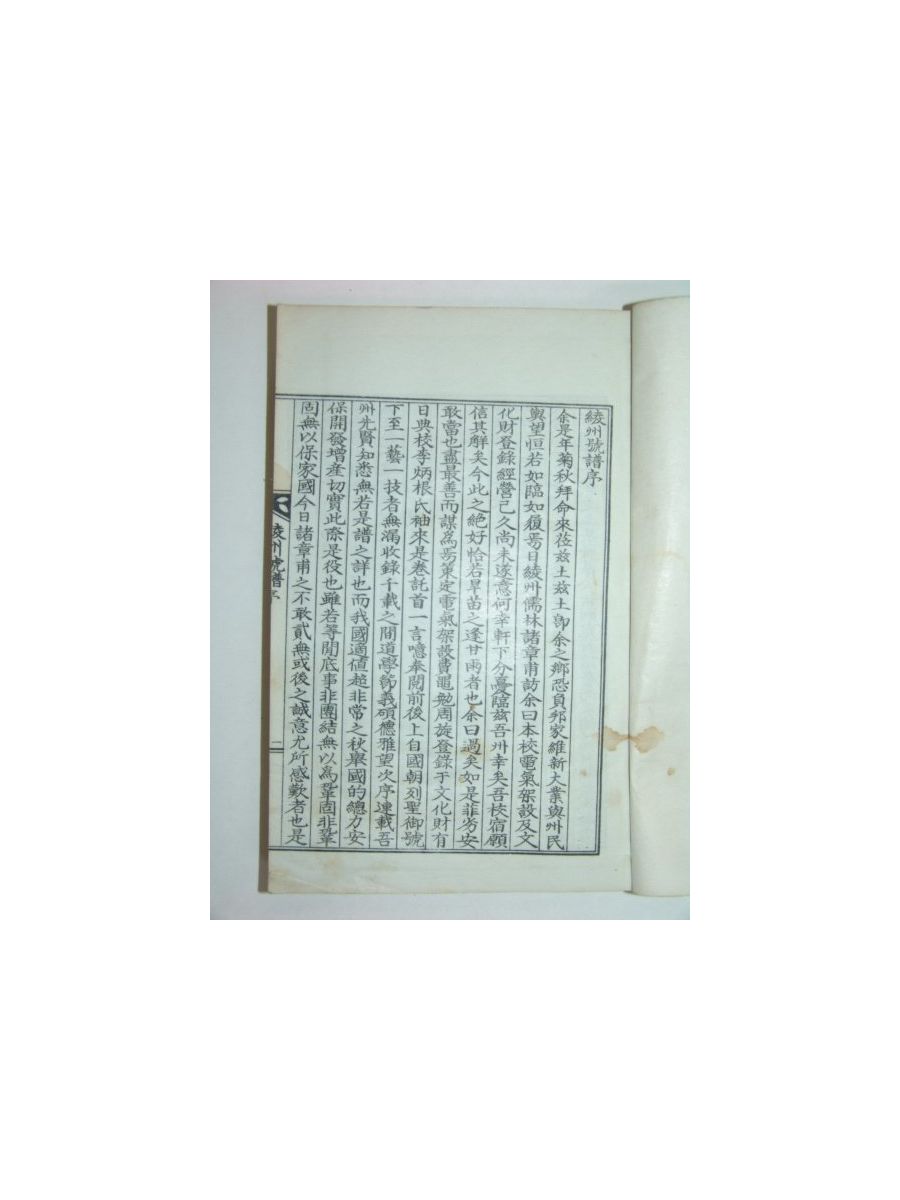 綾州號譜序
余是年菊秋拜命來莅玆土玆土卽余之鄕恐負邦家維新大業與州民
輿望恒若如臨如履焉日綾州儒林諸章甫訪余曰本校電氣架設及文
化財登錄經營已久尚未遂意何幸軒下分憂臨玆吾州幸矣吾校宿願
信其解矣今此之絶好恰若旱苗之逢甘雨者也余曰過矣如是菲劣安
敢當也盡最善而謀爲焉策定電氣架設費黽勉周旋登錄于文化財有
日典校李炳根氏袖來是卷託首一言噫奉閱前後上自國朝列聖御號
下至一藝一技者無漏收錄千載之間道學節義碩德雅望次序連載吾
州先賢知悉無若是譜之詳也而我國適値超非常之秋擧國的總力安
保開發增産切實此際是役也雖若等閒底事非團結無以爲鞏固非鞏
固無以保家國今日諸章甫之不敢貳無或後之誠意尤所感歎者也是
綾州號譜序
一